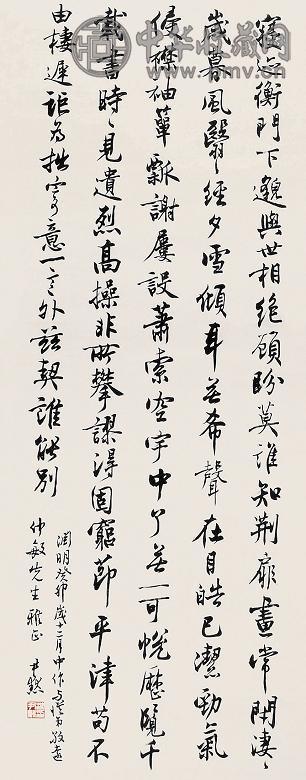 寢迹衡門下邈與世相絕顧盼莫誰知荊扉晝常閉淒〻
歲暮風翳〻經夕雪傾耳無希聲在目皓已潔勁氣
侵襟袖簞瓢謝屢設蕭索空宇中了無一可悅歷覽千
載書時〻見遺烈高操非所攀謬得固窮節平津苟不
由棲遲詎為拙寄意一言外茲契誰能別
淵明癸卯歲十二月中作與從弟敬遠
仲敏先生雅正 尹默
中华收藏网